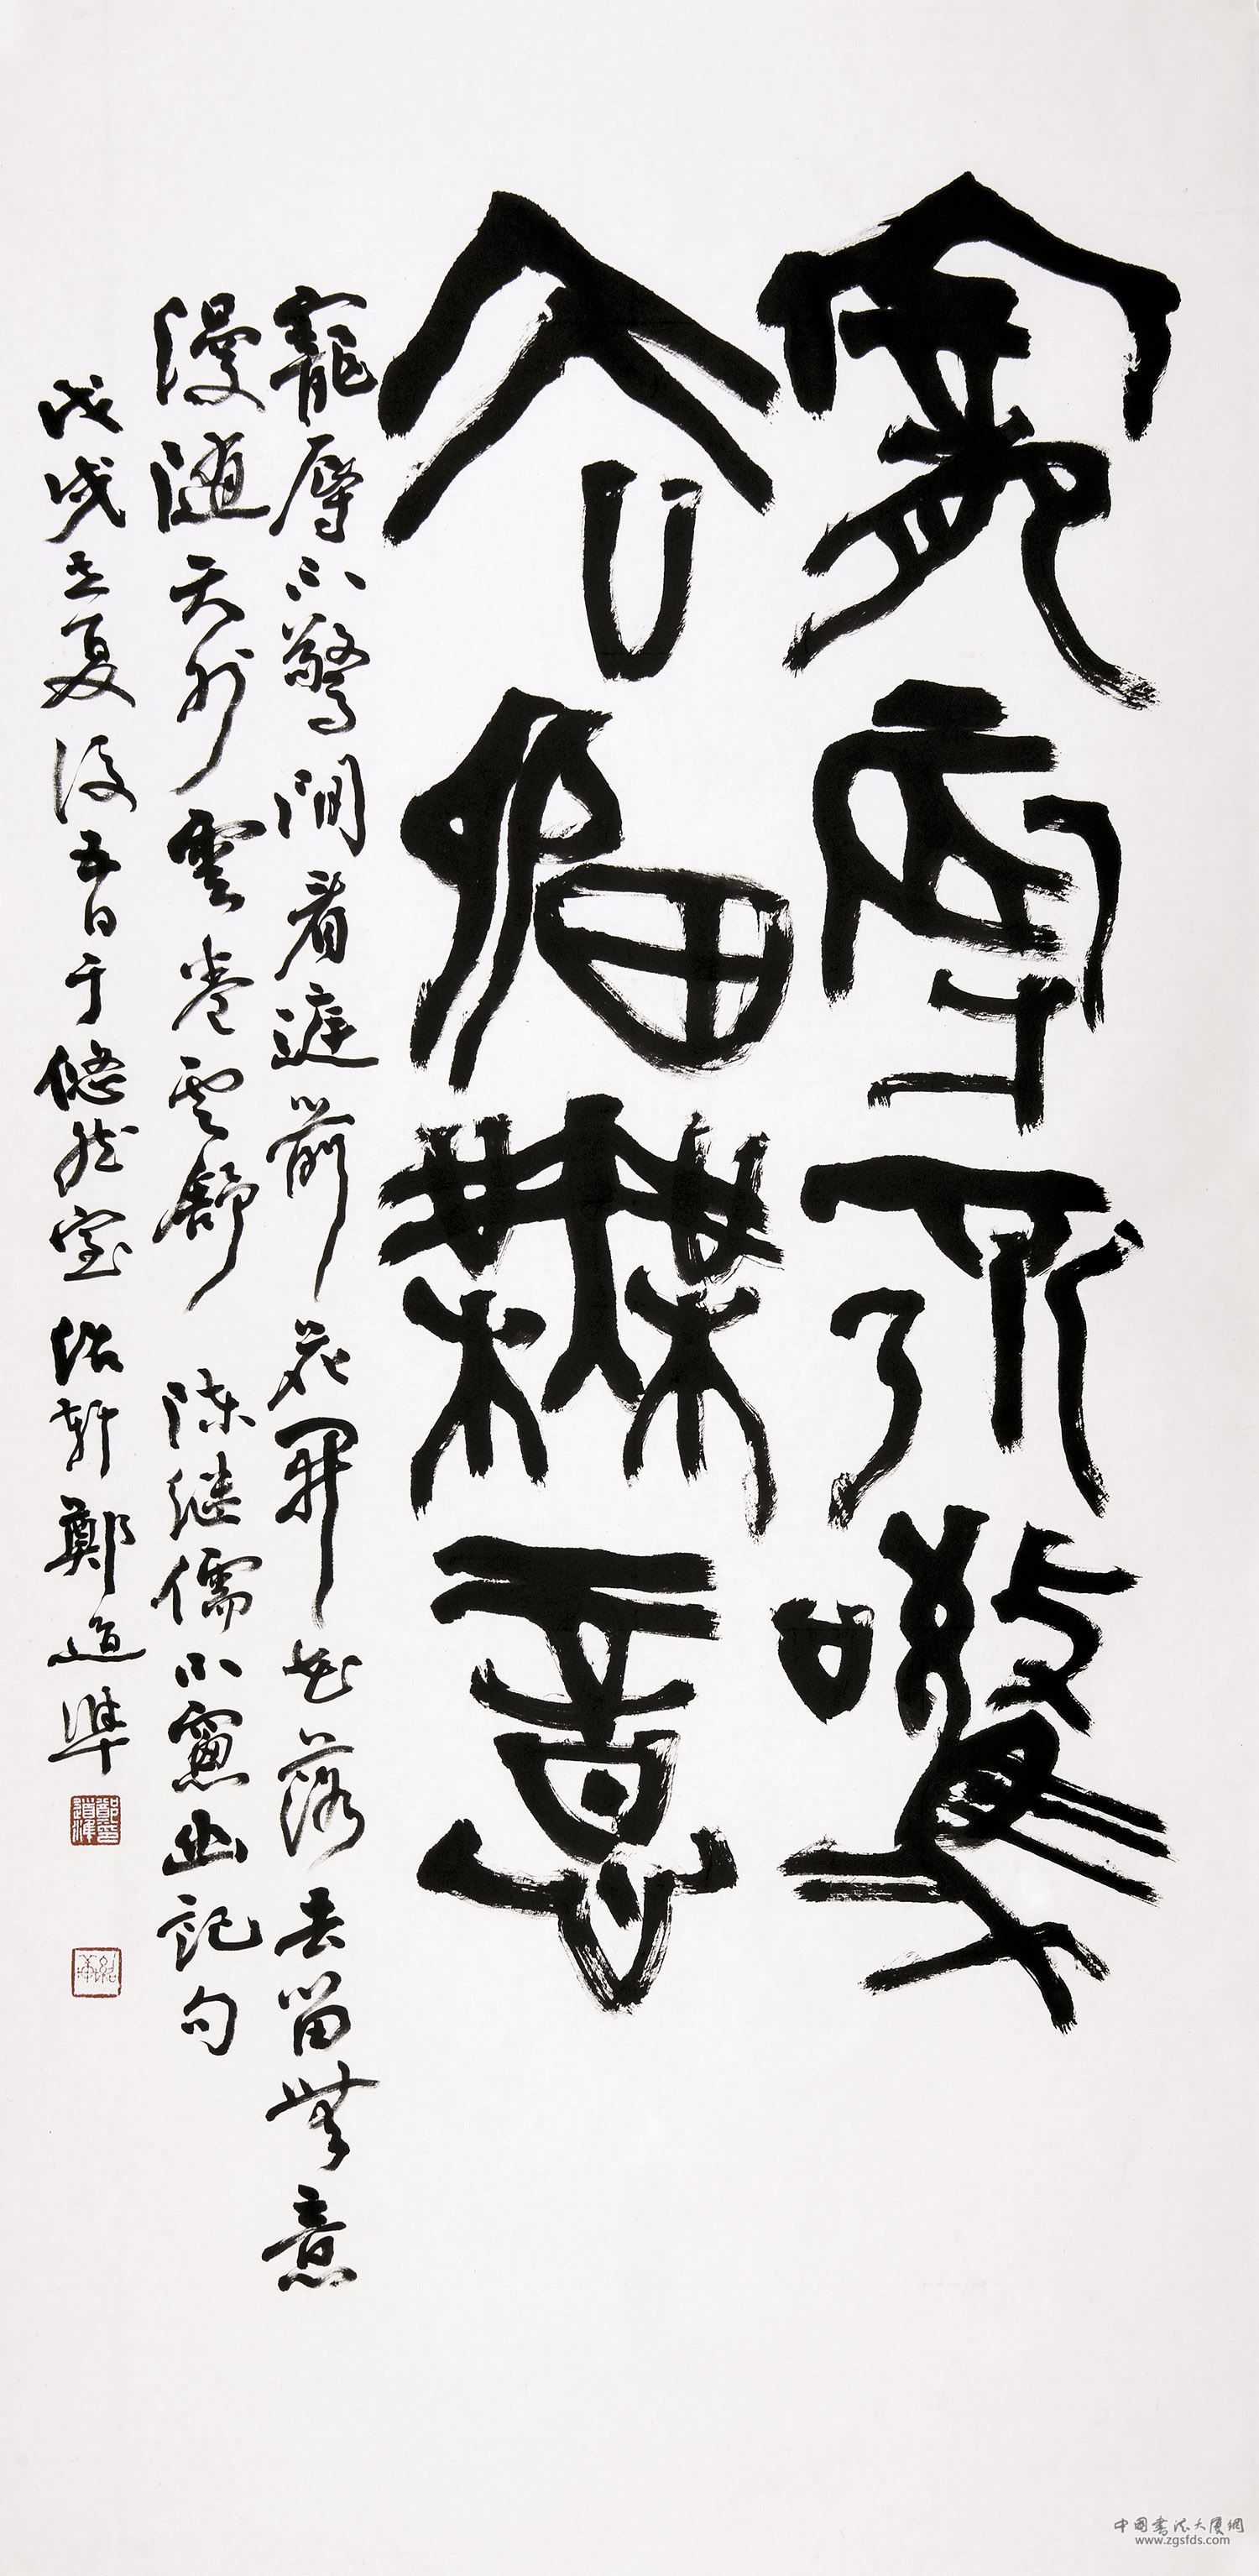 寵辱不驚
去留無意
寵辱不驚閒看庭前花開花落去留無意
漫隨天外雲卷雲舒 陳继儒小窗幽記句
戊戌立夏後五日于悠然室紹軒鄭道準
中国书法大厦网
www.zgsfds.com